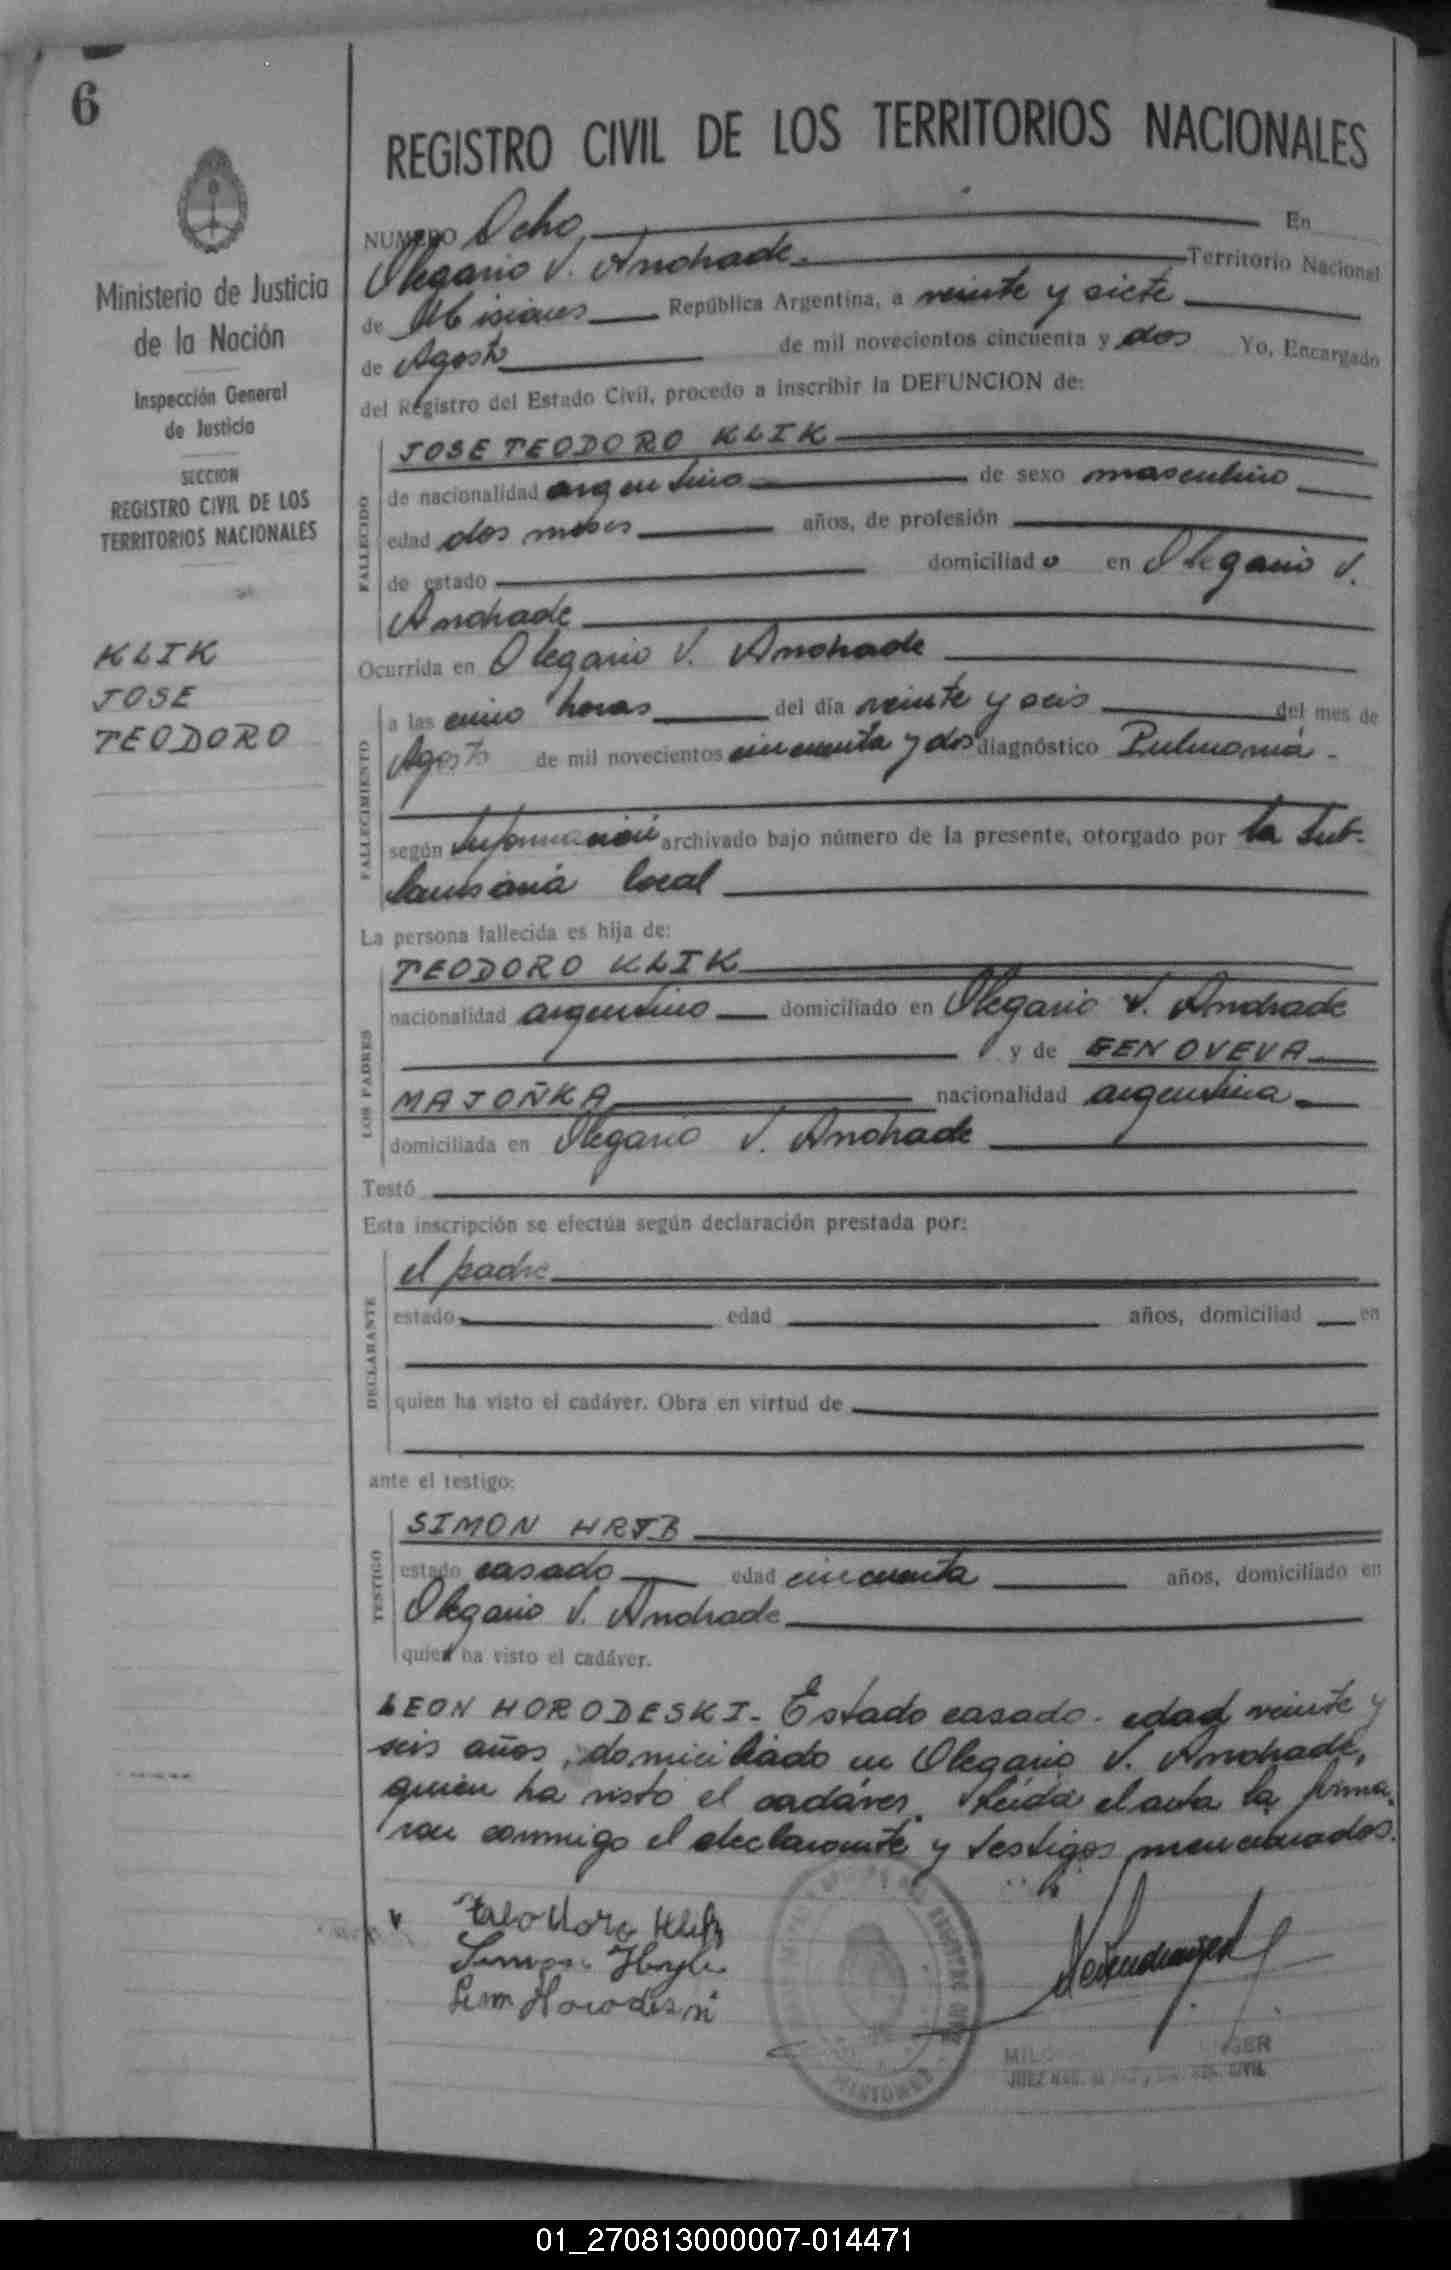 6
Ministerio de Justicia
de la Nación
Inspección General
de Justicia
SECCION
REGISTRO CIVIL DE LOS
TERRITORIOS NACIONALES
KLIK
JOSE
TEODORO
REGISTRO CIVIL DE LOS TERRITORIOS NACIONALES
NUMERO Ocho En
Olegario V. Andrade. Territorio Nacional
de Misiones República Argentina, a veinte y siete
de Agosto de mil novecientos cincuenta y dos Yo, Encargado
del Registro del Estado Civil, procedo a inscribir la DEFUNCION de:
FALLECIDO
JOSE TEODORO KLIK
de nacionalidad argentino de sexo masculino
edad dos meses años, de profesión
de estado domiciliado en Olegario V.
Andrade
Ocurrida en Olegario V. Andrade
FALLECIMIENTO
a las cinco horas del día veinte y seis del mes de
Agosto de mil novecientos cincuenta y dos diagnóstico Pulmonía.
según información archivado bajo número de la presente, otorgado por la Sub-
local
La persona fallecida es hija de:
LOS PADRES
TEODORO KLIK
nacionalidad argentino domiciliado en Olegario V. Andrade
y de GENOVEVA
MAJOÑKA nacionalidad argentina
domiciliada en Olegario V. Andrade
Testó
Esta inscripción se efectúa según declaración prestada por:
DECLARANTE
el padre
estado edad años, domiciliad en
quien ha visto el cadáver. Obra en virtud de
ante el testigo:
TESTIGO
SIMON HRYB
estado casado edad cincuenta años, domiciliado en
Olegario V. Andrade
quien ha visto el cadáver.
LEON HORODESKI. Estado casado. edad veinte y
seis años, domiciliado en Olegario V. Andrade,
quien ha visto el cadáver. Leída el acta la firma-
ron conmigo el declarante y testigos mencionados.
Teodoro Klik
Leon Horodeski
MISIONES
01_270813000007-014471